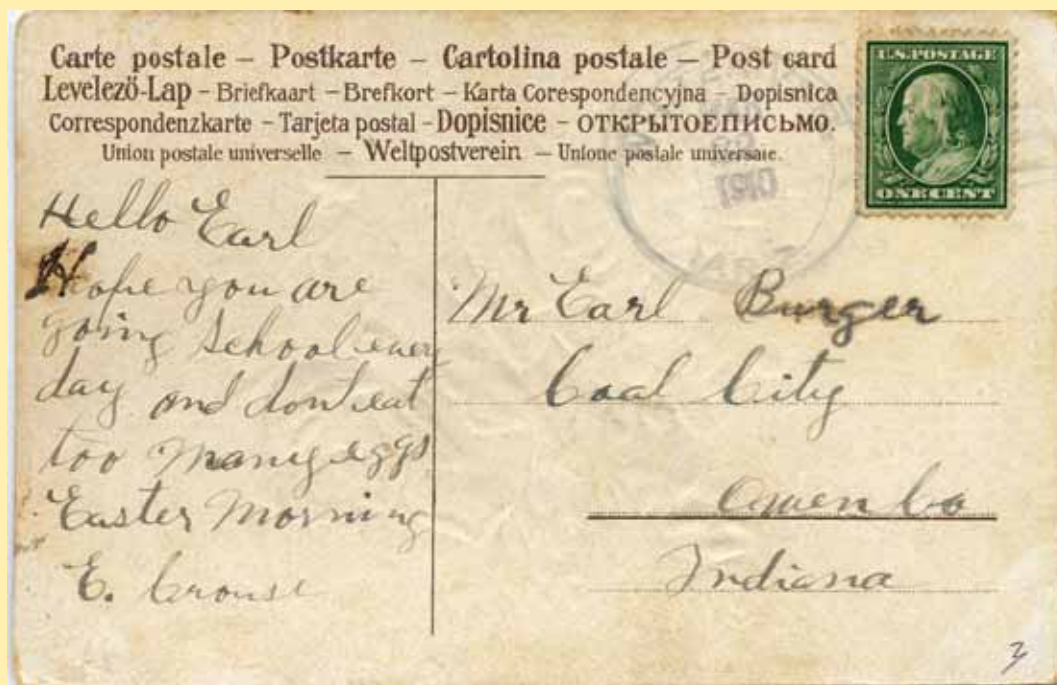 Carte postale – Postkarte – Cartolina postale – Post card
Levelező-Lap – Briefkaart – Brefkort – Karta Corespondencyjna – Dopisnica
Correspondenzkarte – Tarjeta postal – Dopisnice – ОТКРЫТОЕПИСЬМО.
Union postale universelle – Weltpostverein – Unione postale universale.
U.S. POSTAGE
ONE CENT
1910
Hello Earl
Hope you are
going School every
day and dont eat
too many eggs
Easter Morning
E. Crouse
Mr Earl Burger
Coal City
Owen Co
Indiana
3